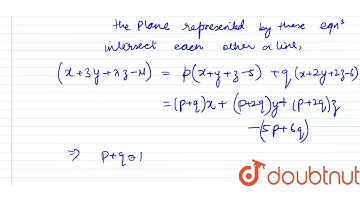 the Plane represented by these eqns
intersect each other a line,
(x+3y+λz-μ) = p(x+y+z-5) + q(x+2y+2z-6)
= (p+q)x + (p+2q)y + (p+2q)z
-(5p+6q)
⇒ p+q=1
doubtnut